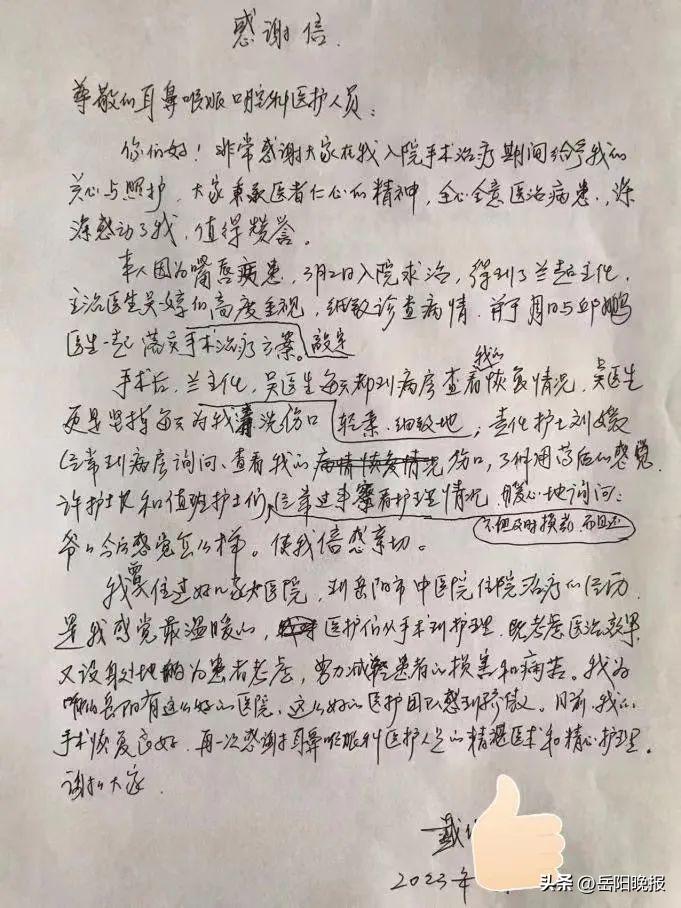 感谢信
尊敬的耳鼻喉眼口腔科医护人员:
你们好!非常感谢大家在我入院手术治疗期间给予我的
关心与照护,大家秉承医者仁心的精神,全心全意医治病患,深
深感动了我,值得赞誉。
本人因为嘴唇病患,3月2日入院求治,得到了兰主任,
主治医生吴婷的高度重视,细致诊查病情,并于周日与邱鹏
医生一起商定手术治疗方案。敲定
手术后,兰主任,吴医生每天都到病房查看我的恢复情况,吴医生
更是坚持每天为我清洗伤口轻柔、细致地;责任护士刘媛
经常到病房询问、查看我的病情恢复情况伤口,了解用药后的感觉
许护士长和值班护士们,经常过来察看护理情况,暖心地询问:
不但及时换药,而且还
爷爷今天感觉怎么样。使我倍感亲切。
我曾住过好几家大医院,到岳阳市中医院住院治疗的经历
是我感觉最温暖的,医护们从手术到护理,既考虑医治效果
又设身处地的为患者考虑,努力减轻患者的损害和病苦。我为
咱们岳阳有这么好的医院、这么好的医护团队感到骄傲。目前,我的
手术恢复良好,再一次感谢耳鼻喉眼科医护人员的精湛医术和精心护理。
谢谢大家
戴
2023年
头条 @岳阳晚报